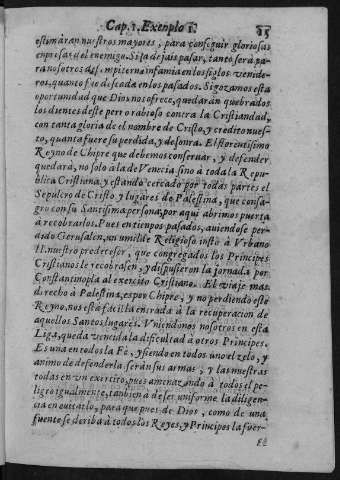 Cap. 1. Exenplo I. 25
estimàran nuestros mayores, para conseguir gloriosas
enpresas del enemigo. Si la dejais pasar, tanto serà pa-
ra nosotros de sempiterna infamia en los siglos venide-
ros, quanto fue deseada en los pasados. Si gozamos esta
oportunidad que Dios nos ofrece, quedaràn quebrados
los dientes deste perro rabioso contra la Cristiandad,
con tanta gloria de el nombre de Cristo, y credito nues-
tro, quanta fuere su perdida, y desonra. El florentisimo
Reyno de Chipre que debemos conseruar, y defender
quedarà, no solo à la de Venecia sino à toda la Repu-
blica Cristiana, y estando cercado por todas partes el
Sepulcro de Cristo y lugares de Palestina, que consa-
gro con su Santisima persona, por aqui abrimos puerta
à recobrarlos. Pues en tienpos pasados, auiendose per-
dido Gerusalen, un umilde Religioso instò à Vrbano
II. nuestro predecesor, que congregados los Principes
Cristianos le recobrasen, y dispusieron la jornada por
Constantinopla al exercito Cristiano. El viaje mas
direcho à Palestina, es por Chipre, y no perdiendo este
Reyno, nos està facil la entrada à la recuperacion de
aquellos Santos lugares. Vniendonos nosotros en esta
Liga, queda vencida la dificultad à otros Principes.
Es una en todos la Fè, y siendo en todos uno el zelo, y
animo de defenderla seràn sus armas, y las nuestras
todas en un exercito, pues amenazando à todos el pe-
ligro igualmente, tanbien à de ser uniforme la diligen-
cia en euitarlo, para que pues de Dios, como de una
fuente se deriba à todos los Reyes, y Principes la fuer-